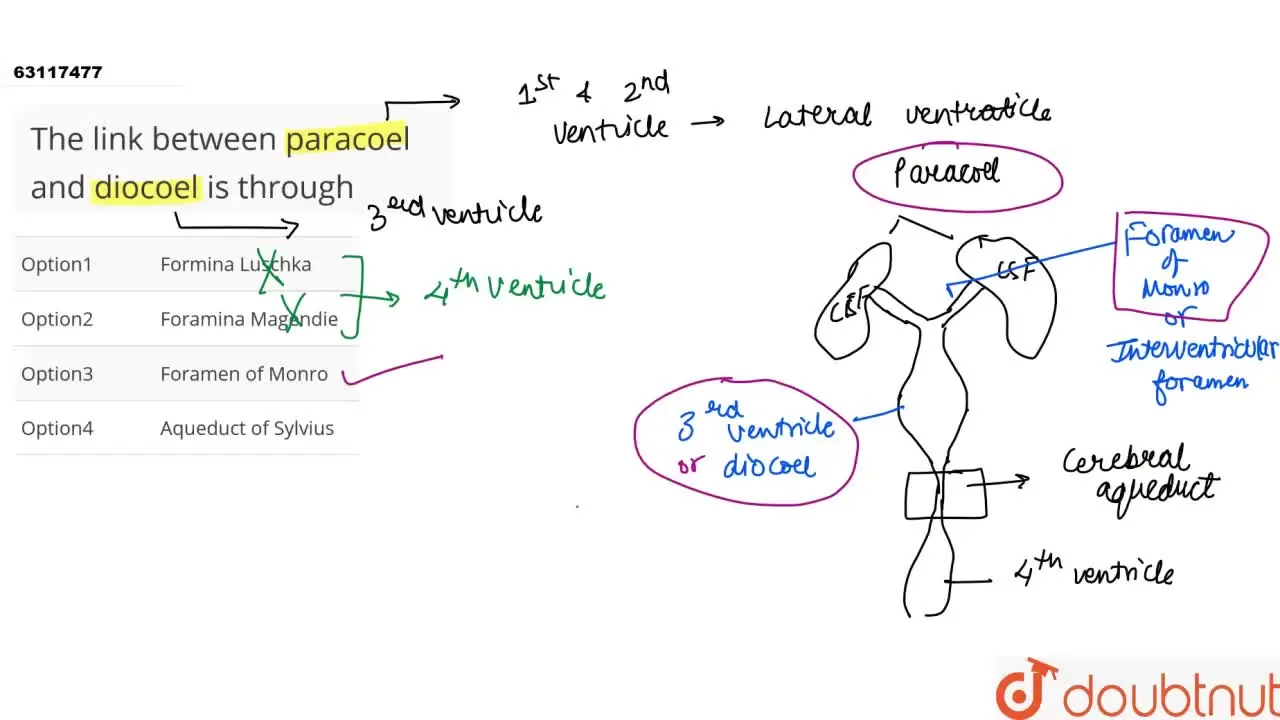 63117477
The link between paracoel
and diocoel is through
Option1 Formina Luschka
Option2 Foramina Magendie
Option3 Foramen of Monro
Option4 Aqueduct of Sylvius
1st & 2nd
ventricle → Lateral ventricle
3rd ventricle
4th ventricle
Paracoel
CSF
CSF
Foramen
of
Monro
or
Interventricular
foramen
3rd ventricle
or diocoel
Cerebral
aqueduct
4th ventricle
doubtnut